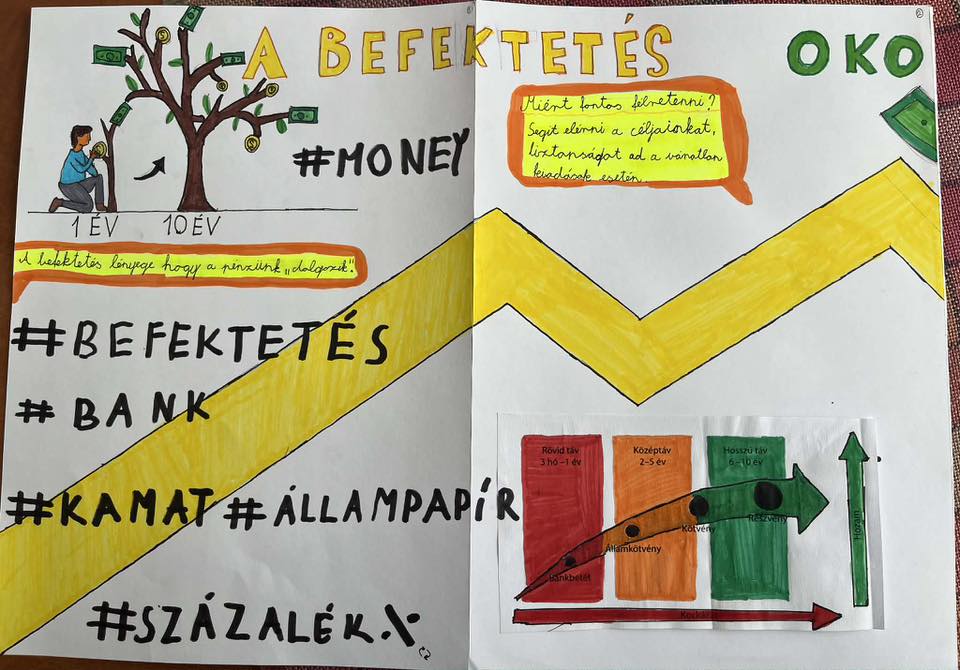 A BEFEKTETÉS OKO
#MONEY
1 ÉV 10 ÉV
Miért fontos félretenni?
Segít elérni a céljainkat,
biztonságot ad a váratlan
kiadások esetén.
A befektetés lényege hogy a pénzünk „dolgozik".
#BEFEKTETÉS
#BANK
#KAMAT #ÁLLAMPAPÍR
#SZÁZALÉK%
Rövid táv Középtáv Hosszú táv
3 hó –1 év 2–5 év 6–10 év
Bankbetét
Államkötvény
Kötvény
Részvény
Hozam